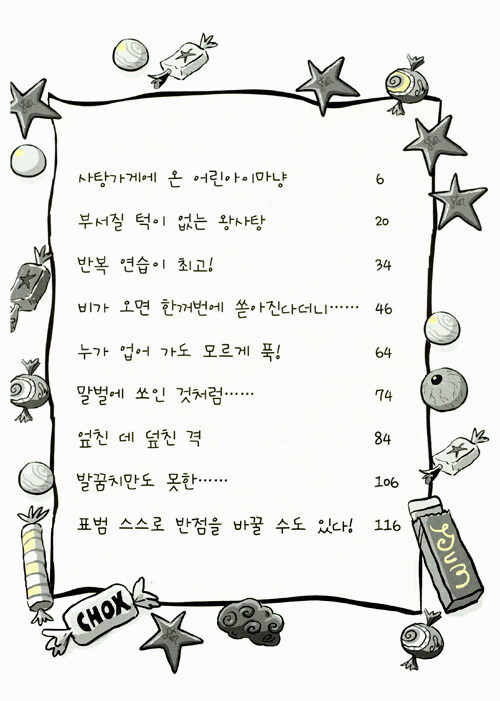 사탕가게에 온 어린아이마냥 6
부서질 턱이 없는 왕사탕 20
반복 연습이 최고! 34
비가 오면 한꺼번에 쏟아진다더니…… 46
누가 업어 가도 모르게 푹! 64
말벌에 쏘인 것처럼…… 74
엎친 데 덮친 격 84
발꿈치만도 못한…… 106
표범 스스로 반점을 바꿀 수도 있다! 116
CHOX
Star
Star
Star
Star
Gum